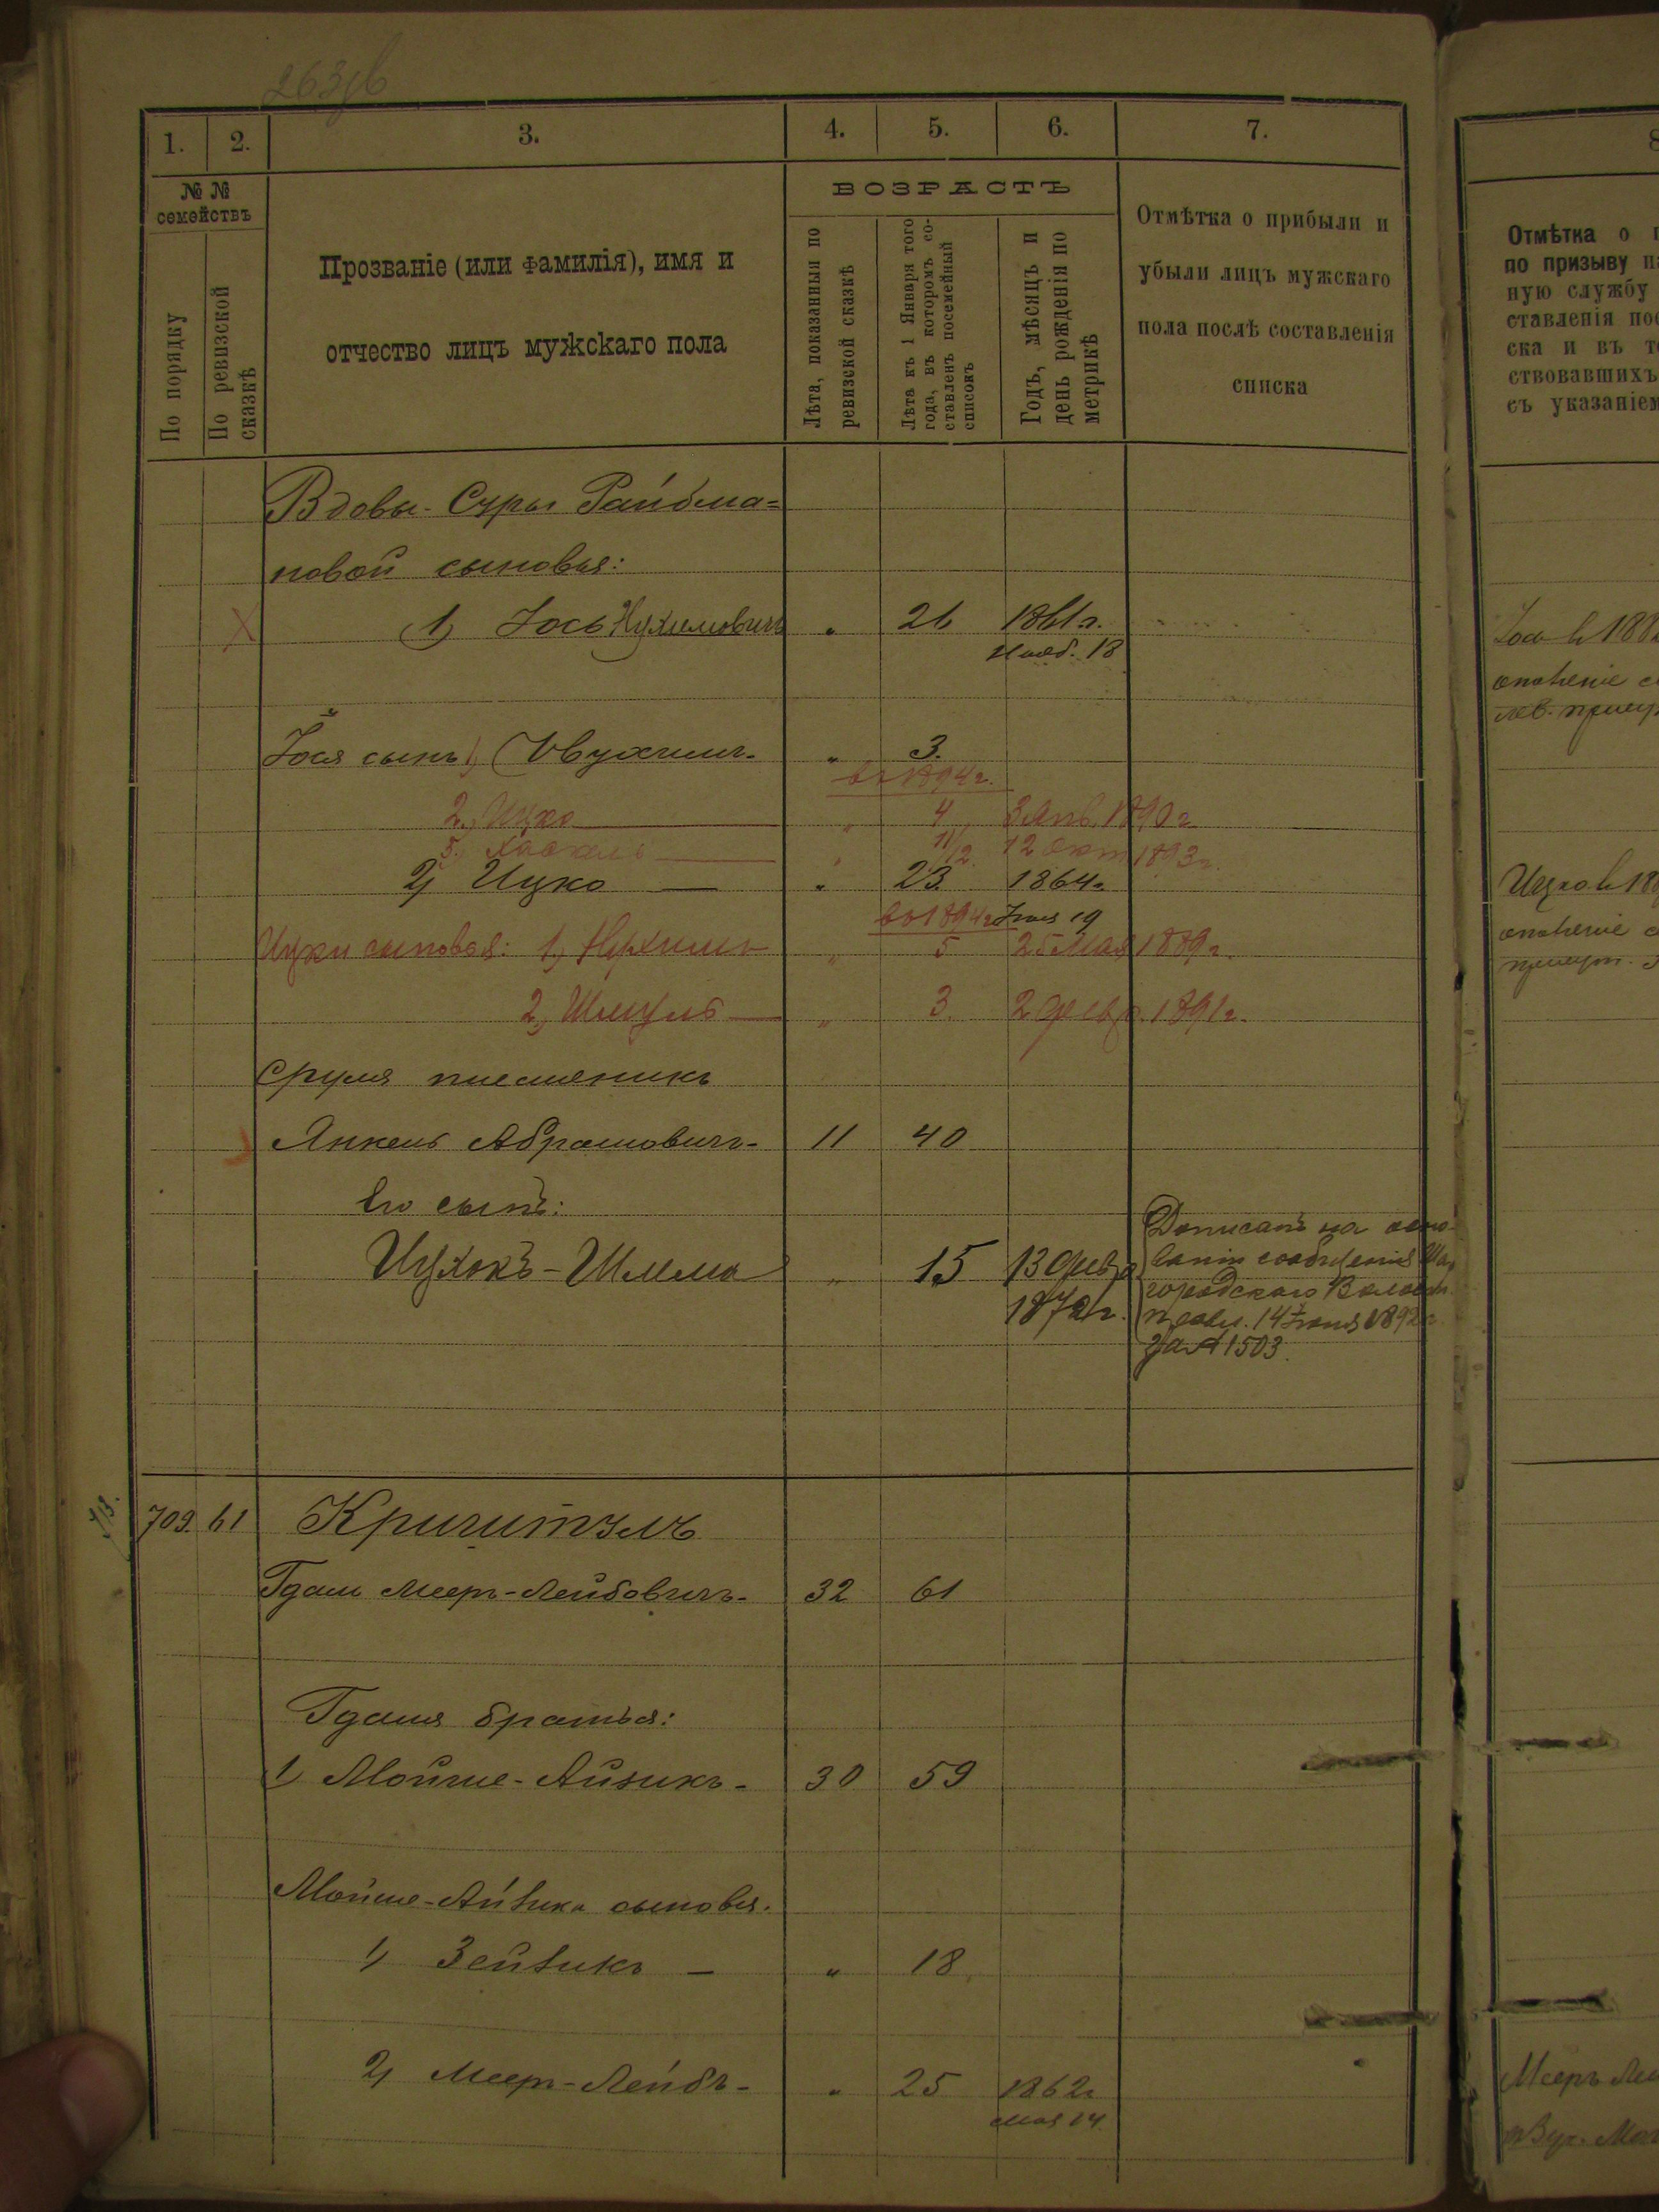 263 об
1. 2. 3. 4. 5. 6. 7.
№ №
семействъ
По порядку
По ревизской
сказкѣ
Прозваніе (или фамилія), имя и
отчество лицъ мужскаго пола
ВОЗРАСТЪ
Лѣта, показанныя по
ревизской сказкѣ
Лѣта къ 1 Января того
года, въ которомъ со-
ставленъ посемейный
списокъ
Годъ, мѣсяцъ и
день рожденія по
метрикѣ
Отмѣтка о прибыли и
убыли лицъ мужскаго
пола послѣ составленія
списка
Вдовы Суры Райбма=
новой сыновья:
1) Іось Нухимовичъ „ 26 1861 г.
Нояб. 18
Іося сынъ 1) „ 3.
въ 1894 г.
2) Ицко „ 4 3 Янв. 1890 г.
3) Хаскель „ 1 1/2. 12 Окт 1893 г.
2) Ицко — „ 23. 1864 г.
въ 1894 г. 19
Ицки сыновья: 1) Нухимъ „ 5 25 Мая 1889 г.
2) Шмуль — „ 3. 2 февр. 1891 г.
Сруля племяникъ
Янкель Абрамовичъ. 11 40
Его сынъ:
Ицхокъ-Шлема „ 15 13 февр
1872 г.
Дописанъ на осно-
ваніи сообщенія Шар
городскаго Волостн.
правл. 14 1892 г.
за № 1503.
709. 61 Кричитэль
Гдаль Меер-Лейбовичъ. 32 61
Гдаля братья:
1) Мойше-Айзикъ. 30 59
Мойше-Айзика сыновья.
1) Зейзикъ — „ 18
2) Меер-Лейбъ. „ 25 1862 г
мая 14
8
Отмѣтка о
по призыву
ную службу
ставленія
ска и въ
ствовавшихъ
съ указаніем
Іось въ 188
Ицко въ 18
Меер